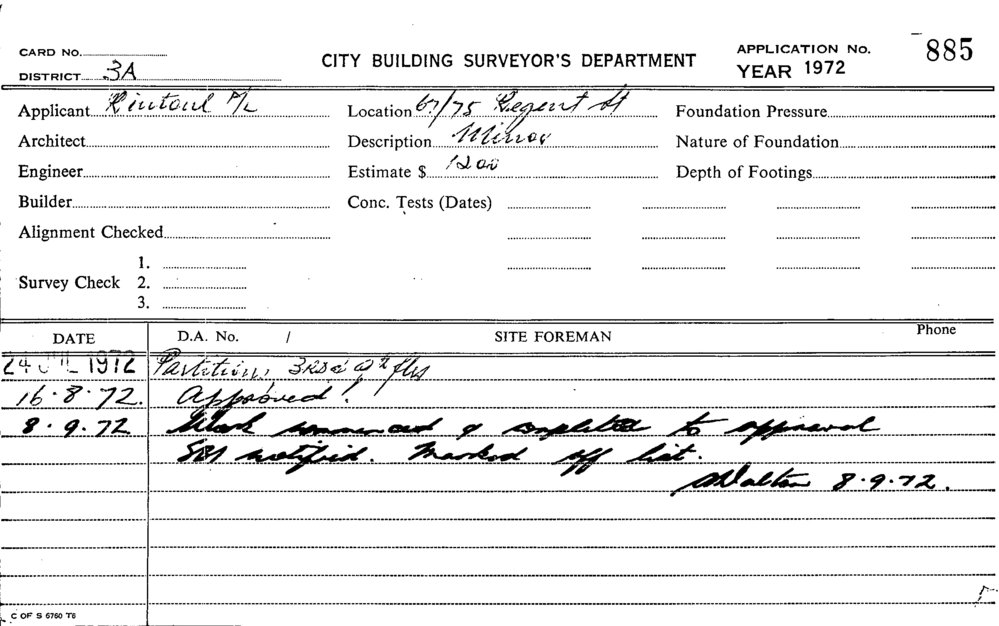 CARD No.
DISTRICT 3A
CITY BUILDING SURVEYOR'S DEPARTMENT
APPLICATION No. 885
YEAR 1972
Applicant Rintoul P/L
Location 67/75 Regent St
Foundation Pressure
Architect
Description Minor
Nature of Foundation
Engineer
Estimate $ 1200
Depth of Footings
Builder
Conc. Tests (Dates)
Alignment Checked
Survey Check 1.
2.
3.
DATE D.A. No. / SITE FOREMAN Phone
24 JUL 1972 Partitions 3rd & flrs
16.8.72. Approved!
8.9.72 Work commenced & completed to approval
notified. Marked off list.
Walton 8.9.72.
C OF S 6760 T6